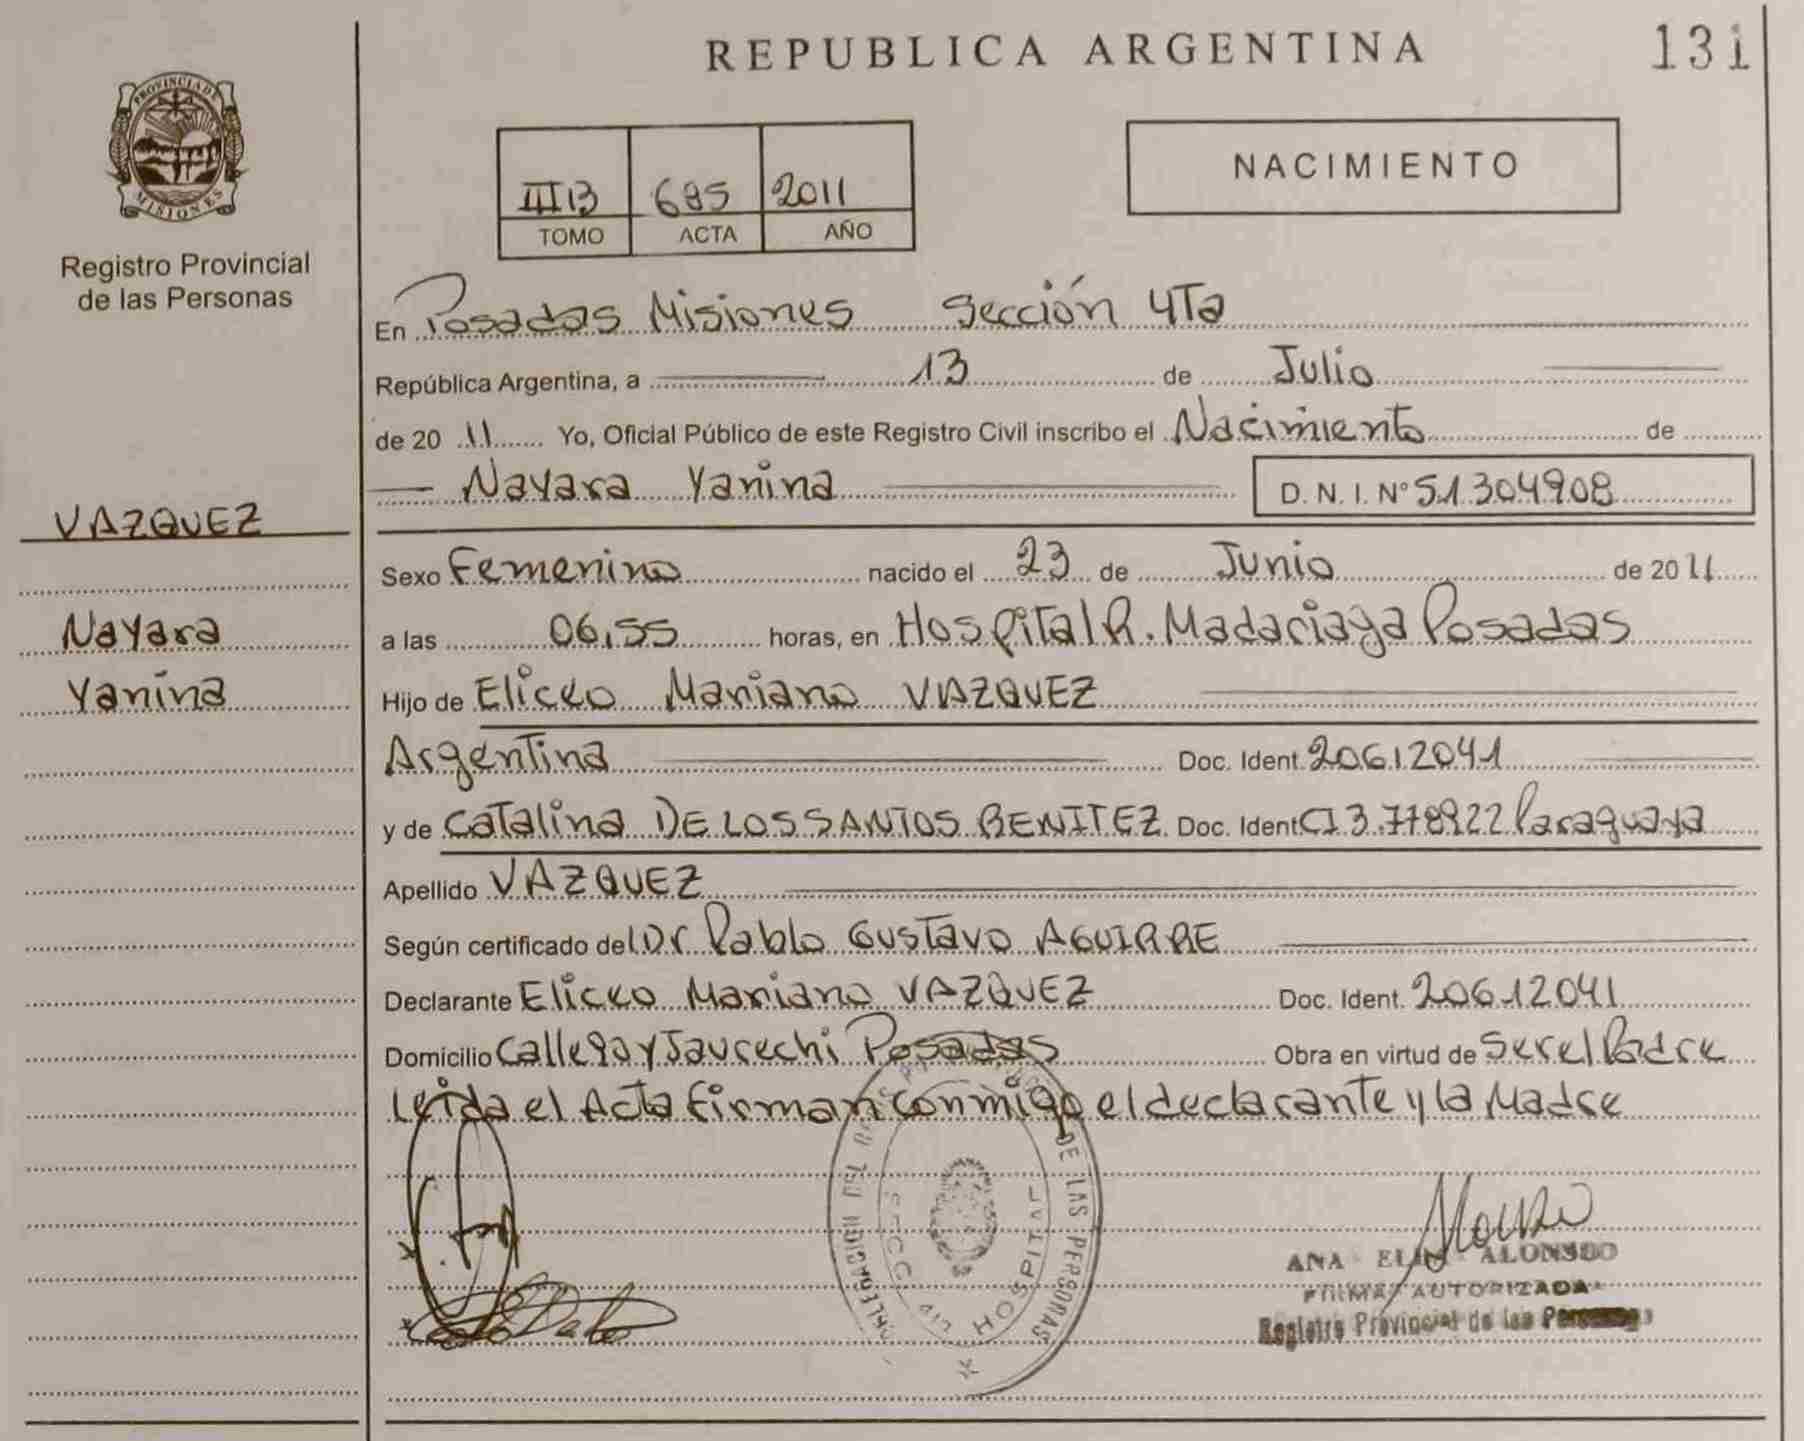 REPUBLICA ARGENTINA
131
PROVINCIA DE
MISIONES
Registro Provincial
de las Personas
NACIMIENTO
III 13 685 2011
TOMO ACTA AÑO
En Posadas Misiones Sección 4Ta
República Argentina, a 13 de Julio
de 20 11 Yo, Oficial Público de este Registro Civil inscribo el Nacimiento de
Nayara Yanina D. N. I. N° 51304908
VAZQUEZ
Nayara
Yanina
Sexo Femenino nacido el 23 de Junio de 20 11
a las 06,55 horas, en Hospital R. Madariaga Posadas
Hijo de Eliceo Mariano VAZQUEZ
Argentina Doc. Ident. 20612041
y de Catalina DE LOS SANTOS BENITEZ Doc. Ident CI 3.778922 Paraguaya
Apellido VAZQUEZ
Según certificado del Dr Pablo Gustavo AGUIRRE
Declarante Eliceo Mariano VAZQUEZ Doc. Ident. 20612041
Domicilio Calle 90 y Jaurechi Posadas Obra en virtud de Ser el Padre
Leida el Acta firman conmigo el declarante y la Madre
DE LAS PERSONAS
HOSPITAL
ANA ALONSO
FIRMA AUTORIZADA
Registro Provincial de las Personas